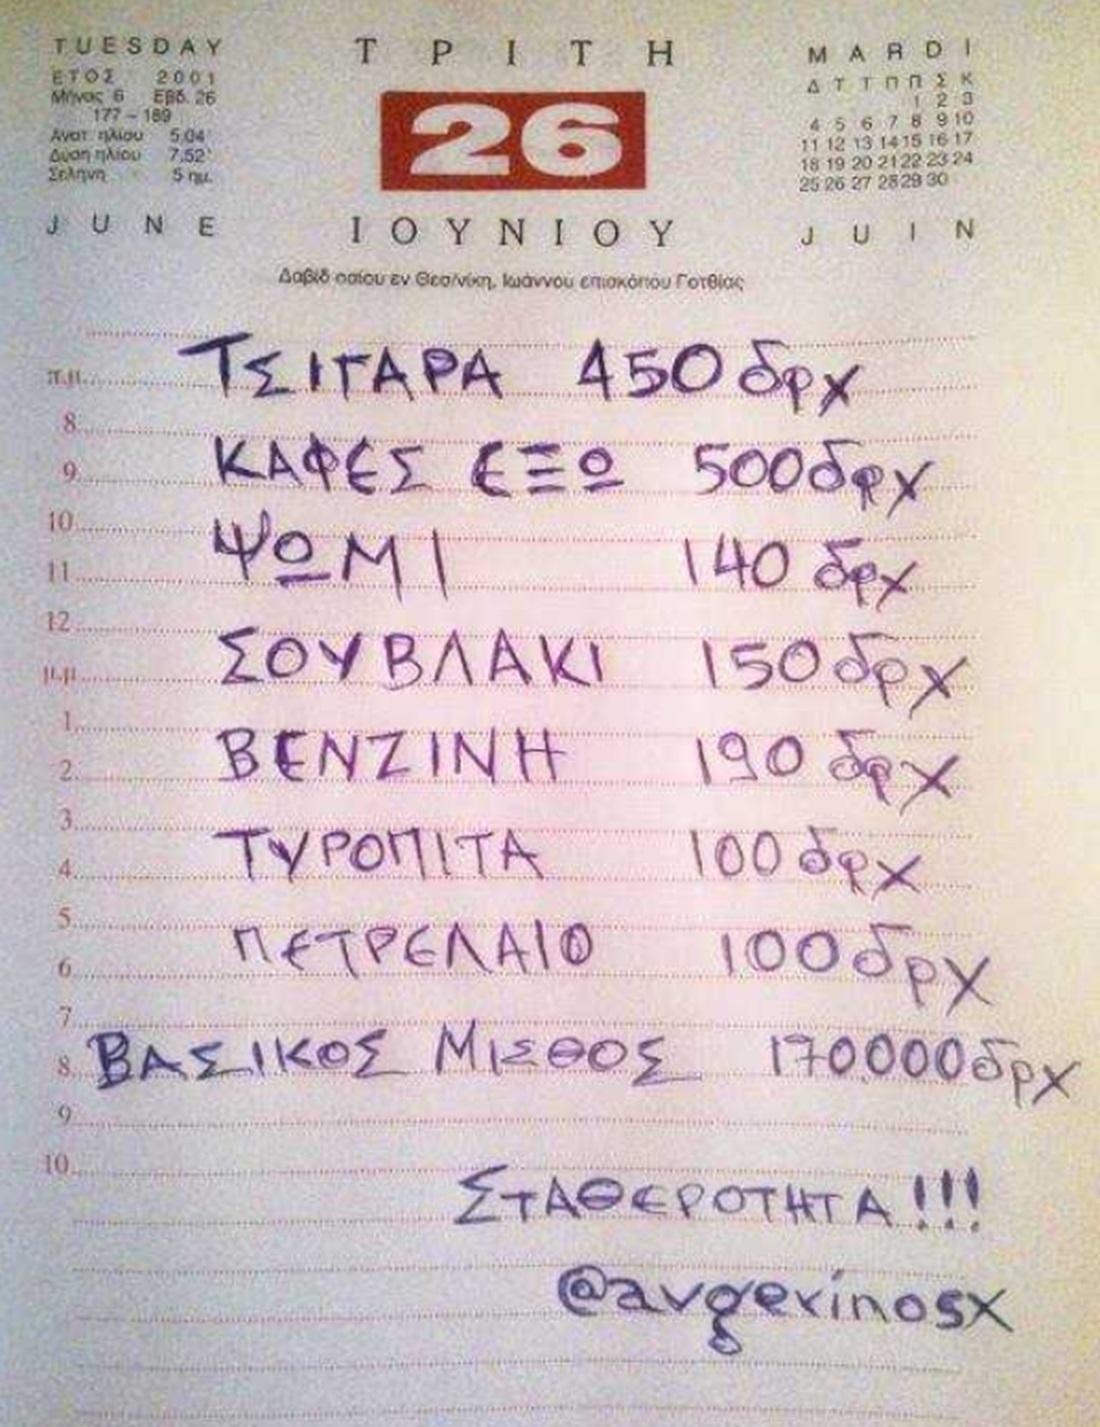 TUESDAY
ΕΤΟΣ 2001
Μήνας 6 Εβδ. 26
177 – 189
Ανατ. ηλίου 5.04'
Δύση ηλίου 7.52'
Σελήνη 5 ημ.
JUNE
ΤΡΙΤΗ
26
ΙΟΥΝΙΟΥ
MARDI
Δ Τ Τ Π Π Σ Κ
1 2 3
4 5 6 7 8 9 10
11 12 13 14 15 16 17
18 19 20 21 22 23 24
25 26 27 28 29 30
JUIN
Δαβίδ οσίου εν Θεσ/νίκη, Ιωάννου επισκόπου Γοτθίας
π.μ. ΤΣΙΓΑΡΑ 450 δρχ
8
9 ΚΑΦΕΣ ΕΞΩ 500 δρχ
10
11 ΨΩΜΙ 140 δρχ
12
μ.μ. ΣΟΥΒΛΑΚΙ 150 δρχ
1
2 ΒΕΝΖΙΝΗ 190 δρχ
3
4 ΤΥΡΟΠΙΤΑ 100 δρχ
5
6 ΠΕΤΡΕΛΑΙΟ 100 δρχ
7
8 ΒΑΣΙΚΟΣ ΜΙΣΘΟΣ 170.000 δρχ
9
10
ΣΤΑΘΕΡΟΤΗΤΑ!!!
@avgerinosx